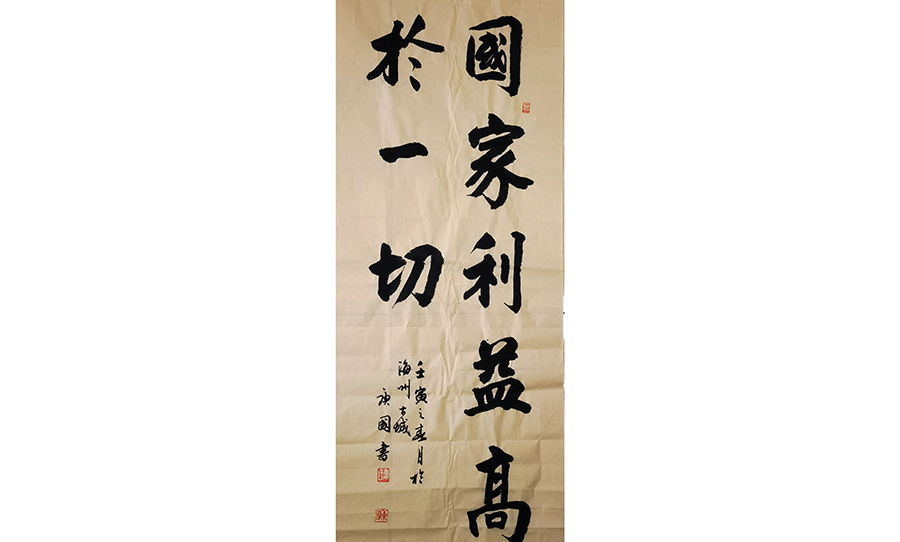 國家利益高
於一切
壬寅之春月於
海州古城
庚國書